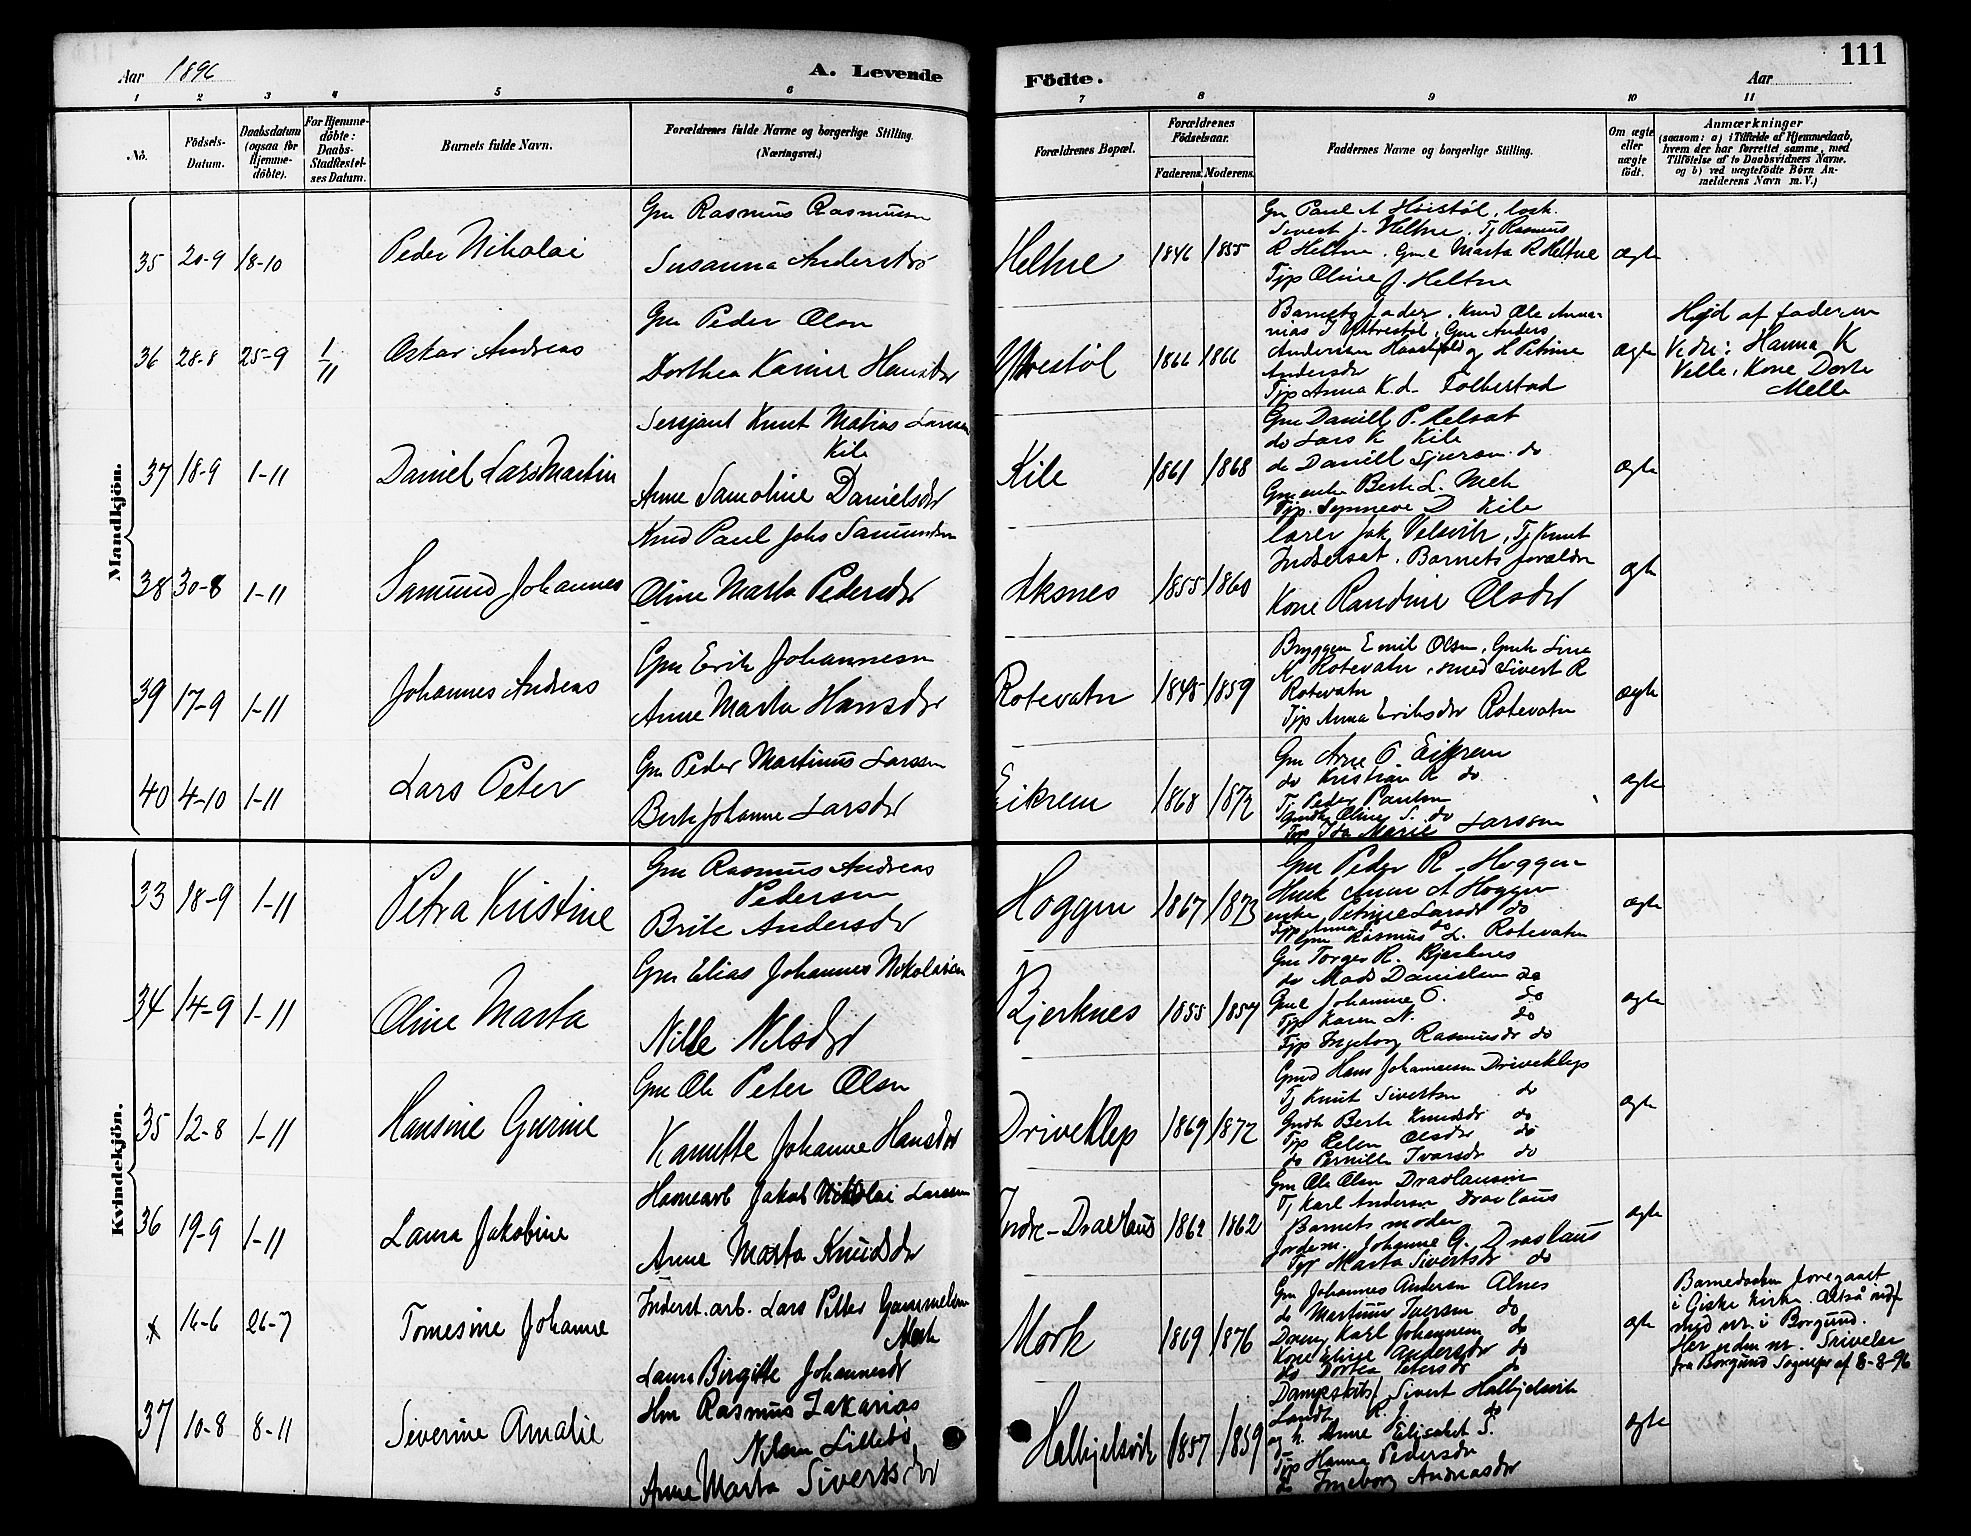 111
Aar 1896
A. Levende
Födte.
Aar
1 2 3 4 5 6 7 8 9 10 11
No.
Födsels-
Datum.
Daabsdatum
(ogsaa for
Hjemme-
döbte).
For Hjemme-
döbte:
Daabs-
Stadfæstel-
ses Datum.
Barnets fulde Navn.
Forældrenes fulde Navne og borgerlige Stilling.
(Næringsvei.)
Forældrenes Bopæl.
Forældrenes
Födselsaar.
Faderens. Moderens.
Faddernes Navne og borgerlige Stilling.
Om ægte
eller
uægte
födt.
Anmærkninger
(saasom: a) i Tilfælde af Hjemmedaab,
hvem der har forrettet samme, med
Tilföielse af to Daabsvidners Navne.
og b) ved uægtefödte Börn An-
melderens Navn m. V.)
Mandkjön.
35 20-9 18-10
Peder Nikolai
Gm Rasmus Rasmussen
Susanna Andersdr
Heltne
1846 1855
Gm Paul A Höistöl
Sivert J. Heltne. Tj Rasmus
R Heltne. Gme Marta R Heltne
Tjp Oline J. Heltne
ægte
36 28-8 25-9 1/11
Oskar Andreas
Gm Peder Olsn
Dorthea Karine Hansdr
Ytrestöl
1866 1866
Barnets fader. Knud Ole Anna-
nias I Ytrestöl. Gm Anders
Andersen
Andersdr
Tjp Anna K.d. Folkestad
ægte
Hjd af faderen
Vidne: Hanna K
Velle. Kone Dorte
Melle
37 18-9 1-11
Daniel Lars Martin
Sersjant Knut Matias Larssen
Kile
Anne Samoline Danielsdr
Kile
1861 1868
Gm Daniell P. Helsat
do Lars K Kile
do Daniell Sjursn do
Gmenke Berte L.
Tjp. Synneve D Kile
ægte
38 30-8 1-11
Samund Johannes
Knud Paul Johs Samundsen
Oline Marta Pedersdr
Aksnes
1855 1860
lærer Jak Velsvik, Tj Knut
Indresæt. Barnets forældre
Kone Randine Olsdr
ægte
39 17-9 1-11
Johannes Andreas
Gm Erik Johannesn
Anne Marta Hansdr
Rotevatn
1848 1859
Emil Olsen, Gmk Lina
K Rotevatn. smed Sivert R
Rotevatn
Tjp Anna Eriksdr Rotevatn
ægte
40 4-10 1-11
Lars Peter
Gm Peder Martinus Larssen
Berte Johanne Larsdr
Eikrem
1868 1872
Gm Arne O. Eikrem
do Kristian R do
Tj Peder Paulsen
Gmdtr Oline S. do
Tjp Ida Marie Larssen
ægte
Kvindekjön.
33 18-9 1-11
Petra Kristine
Gm Rasmus Andreas
Pedersen
Brite Andersdr
Hoggen
1867 1873
Gm Peder R. Hoggen
Anne A Hoggen
enke Petrine Larsdr do
Tjp Anna do
Gm Rasmus L. Rotevatn
ægte
34 14-9 1-11
Oline Marta
Gm Elias Johannes Nikolaisen
Nille Nilsdr
Bjerknes
1855 1857
Gm Torger R. Bjerknes
do Mads Danielsen do
Gme Johanne O. do
Tjp Karen N. do
Tjp Ingeborg Rasmusdr do
ægte
35 12-8 1-11
Hansine Gurine
Gm Ole Peter Olsn
Kanutte Johanne Hansdr
Driveklep
1869 1872
Gmd Hans Johannesen Driveklep
Tj Knut Sivertsn do
Gmdtr Berte Knudsdr do
Tjp Helen Olsdr do
do Pernille Ivarsdr do
ægte
36 19-9 1-11
Laura Jakobine
Havnearb Jakob Nikolai Larssen
Anne Marta Knudsdr
Indre-Dravlaus
1862 1862
Gm Ole Olsen Dravlausin
Tj Karl Andersen Dravlaus
Barnets moder
Jordem. Johanne G. Dravlaus
Tjp Marta Sivertsdr do
ægte
x 16-6 26-7
Tomesine Johanne
Inderst. arb. Lars Petter Gammelsen
Mork
Laura Birgitte Johannesdr
Mork
1869 1876
Gm Johannes Andersn Alnes
do Martinus Iversen do
Dreng Karl Johannesn do
Kone Eline Andersdr do
do Dortea Petersdr do
ægte
Barnedaaben foregaaet
i Giske Kirke. Altså indf
med nr. i Borgund.
Her uden nr. Skrivelse
fra Borgund Sognepr af 8-8-96
37 10-8 8-11
Severine Amalie
Hm Rasmus Zakarias
Nilsen Lillebö
Anne Marta Sivertsdr
Halkjelsvik
1857 1859
Dampskibsf Sivert Halkjelsvik
Landh. R. J. do
og h. Anne Elisabet S.
Tjp Hanna Pedersdr
do Ingeborg Andreasdr
ægte